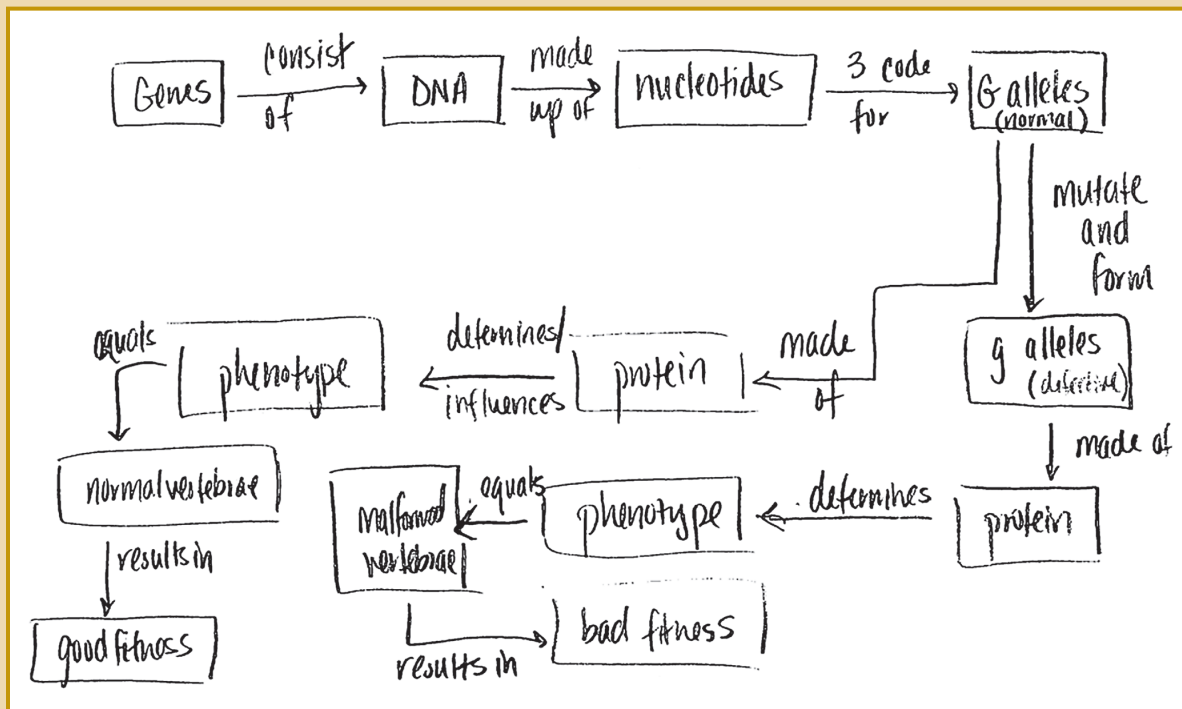 Genes
consist
of
DNA
made
up of
nucleotides
3 code
for
G alleles
(normal)
mutate
and
form
g alleles
(defective)
made of
protein
determines
phenotype
equals
malformed
vertebrae
results in
bad fitness
made
of
protein
determines/
influences
phenotype
equals
normal vertebrae
results in
good fitness